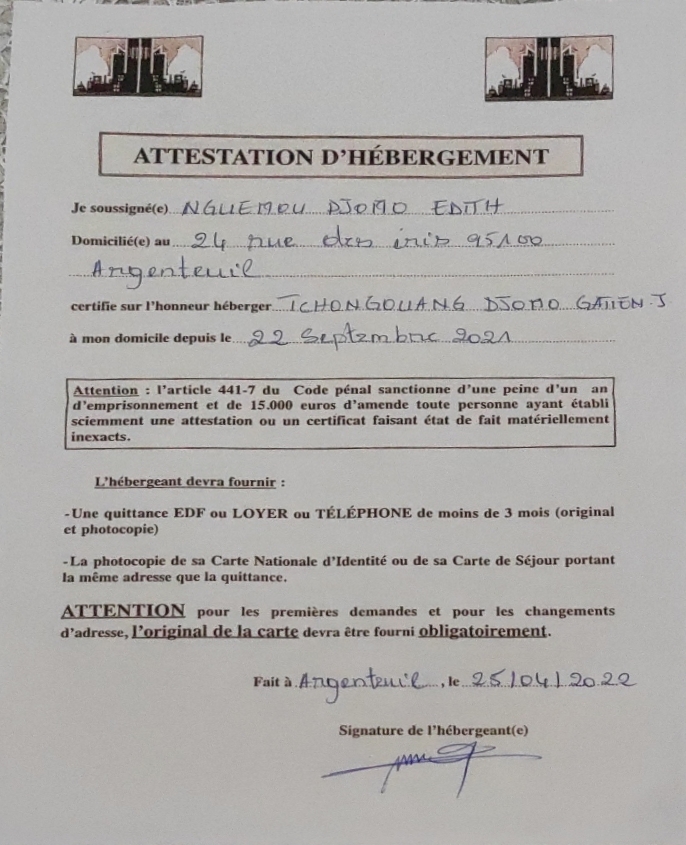 ATTESTATION D'HÉBERGEMENT
Je soussigné(e) NGUEMOU DJOMO EDITH
Domicilié(e) au 24 rue des iris 95100
Argenteuil
certifie sur l'honneur héberger TCHONGOUANG DJOMO GATIEN.J
à mon domicile depuis le 22 Septembre 2021
Attention : l'article 441-7 du Code pénal sanctionne d'une peine d'un an
d'emprisonnement et de 15.000 euros d'amende toute personne ayant établi
sciemment une attestation ou un certificat faisant état de fait matériellement
inexacts.
L'hébergeant devra fournir :
-Une quittance EDF ou LOYER ou TÉLÉPHONE de moins de 3 mois (original
et photocopie)
-La photocopie de sa Carte Nationale d'Identité ou de sa Carte de Séjour portant
la même adresse que la quittance.
ATTENTION pour les premières demandes et pour les changements
d'adresse, l'original de la carte devra être fourni obligatoirement.
Fait à Argenteuil, le 25/04/2022
Signature de l'hébergeant(e)